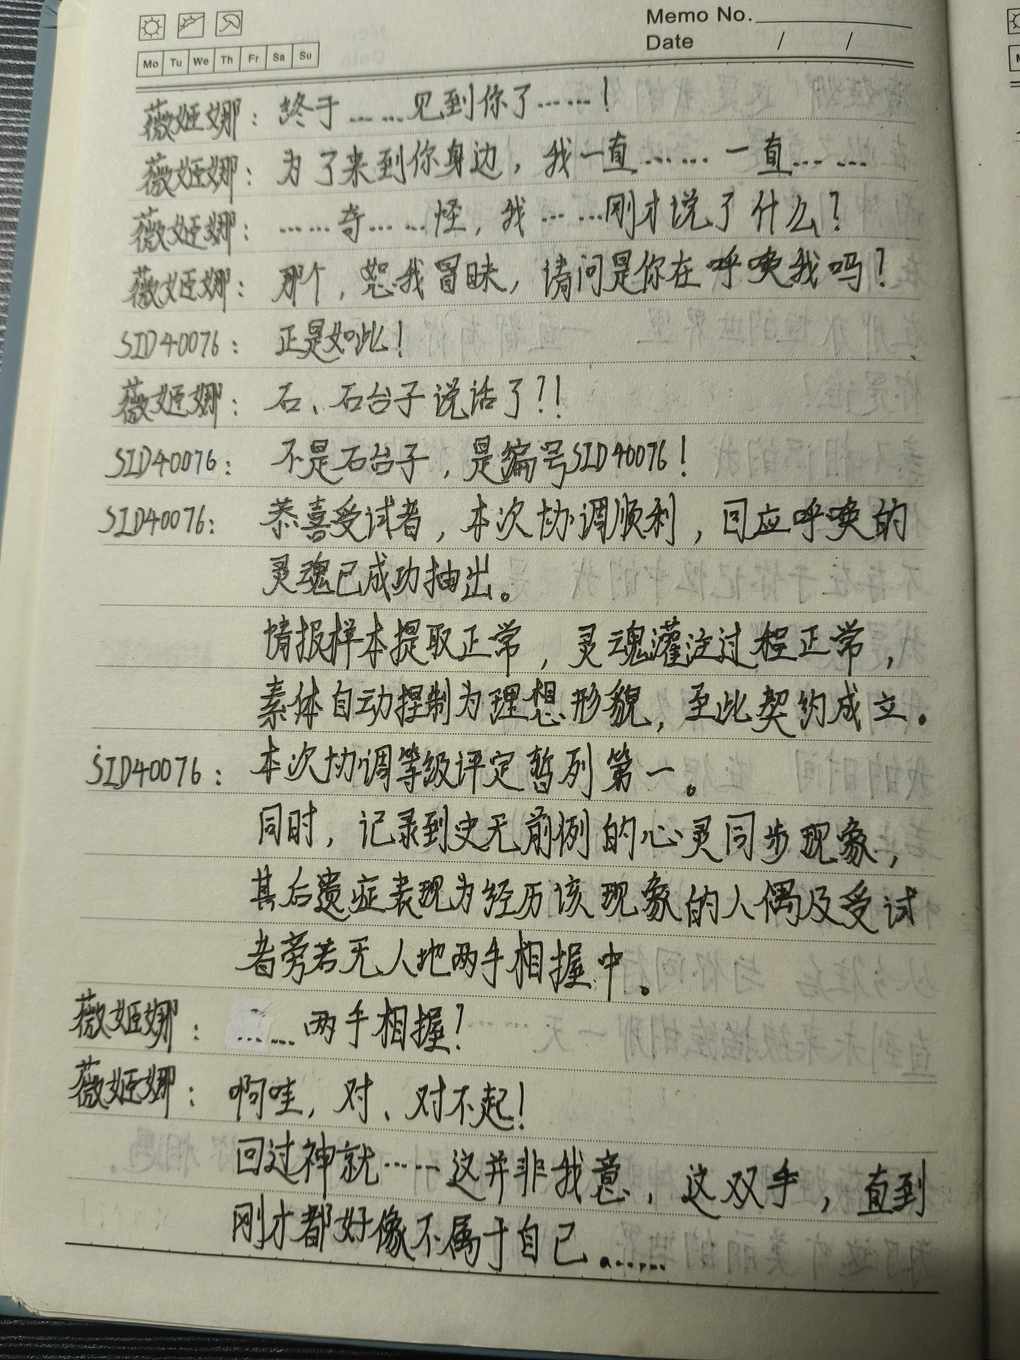 Memo No.
Mo Tu We Th Fr Sa Su
Date / /
薇姬娜：终于……见到你了……！
薇姬娜：为了来到你身边，我一直……一直……
薇姬娜：……奇……怪，我……刚才说了什么？
薇姬娜：那个，恕我冒昧，请问是你在呼唤我吗？
SID40076：正是如此！
薇姬娜：石、石台子说话了？！
SID40076：不是石台子，是编号SID40076！
SID40076：恭喜受试者，本次协调顺利，回应呼唤的
灵魂已成功抽出。
情报样本提取正常，灵魂灌注过程正常，
素体自动捏制为理想形貌，至此契约成立。
SID40076：本次协调等级评定暂列第一。
同时，记录到史无前例的心灵同步现象，
其后遗症表现为经历该现象的人偶及受试
者旁若无人地两手相握中。
薇姬娜：……两手相握？
薇姬娜：啊哇，对、对不起！
回过神就……这并非我意，这双手，直到
刚才都好像不属于自己……